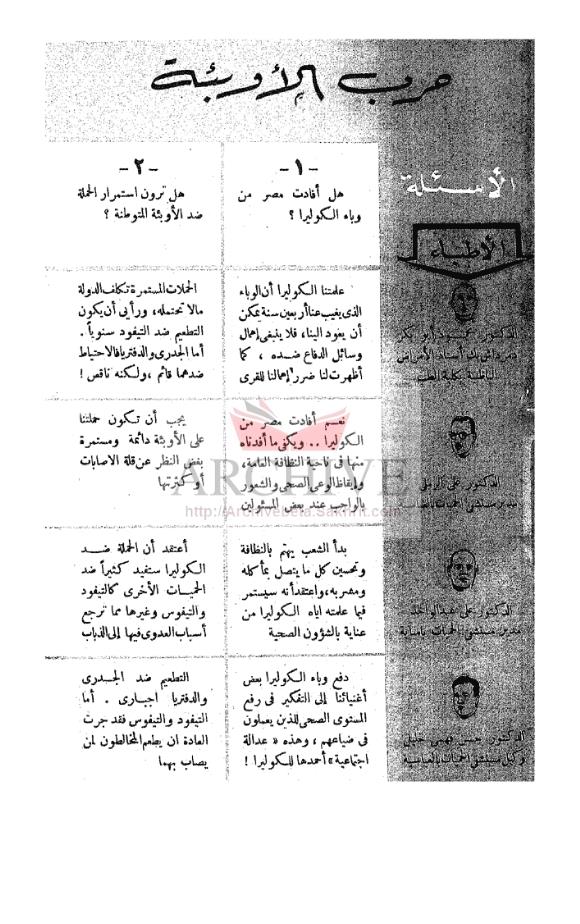 حرب الأوبئة
الأسئلة
- ١ -
هل أفادت مصر من
وباء الكوليرا ؟
- ٢ -
هل ترون استمرار الحملة
ضد الأوبئة المتوطنة ؟
الأطباء
الدكتور أبو بكر
أستاذ الأمراض
الباطنية بكلية الطب
علمتنا الكوليرا أن الوباء
الذى يغيب عنا أربعين سنة يمكن
أن يعود الينا، فلا ينبغى إهمال
وسائل الدفاع ضده ، كما
أظهرت لنا ضرر إهمالنا للقرى
الحملات المستمرة تكلف الدولة
مالا تحتمله، ورأيى أن يكون
التطعيم ضد التيفود سنوياً .
أما الجدرى والدفتريا فالاحتياط
ضدهما قائم ، ولكنه ناقص !
الدكتور على
مدير مستشفى الحميات
نعم أفادت مصر من
الكوليرا .. ويكفى ما أفدناه
منها فى ناحية النظافة العامة،
وإيقاظ الوعى الصحى والشعور
بالواجب عند بعض المسئولين
يجب أن تكون حملتنا
على الأوبئة دائمة ومستمرة
بغض النظر عن قلة الاصابات
أو كثرتها
ARCHIVE
http://Archivebeta.Sakhrit.com
الدكتور على عبد الواحد
مدير مستشفى الحميات بامبابة
بدأ الشعب يهتم بالنظافة
وتحسين كل ما يتصل بمأكله
ومشربه، واعتقد أنه سيستمر
فيما علمته اياه الكوليرا من
عناية بالشؤون الصحية
أعتقد أن الحملة ضد
الكوليرا ستفيد كثيراً ضد
الحميات الأخرى كالتيفود
والتيفوس وغيرها مما ترجع
أسباب العدوى فيها إلى الذباب
الدكتور حسن فهمى خليل
وكيل مستشفى الحميات بالعباسية
دفع وباء الكوليرا بعض
أغنيائنا إلى التفكير فى رفع
المستوى الصحى للذين يعملون
فى ضياعهم ، وهذه « عدالة
اجتماعية » أحمدها للكوليرا !
التطعيم ضد الجدرى
والدفتريا اجبارى . أما
التيفود والتيفوس فقد جرت
العادة ان يطعم المخالطون لمن
يصاب بهما